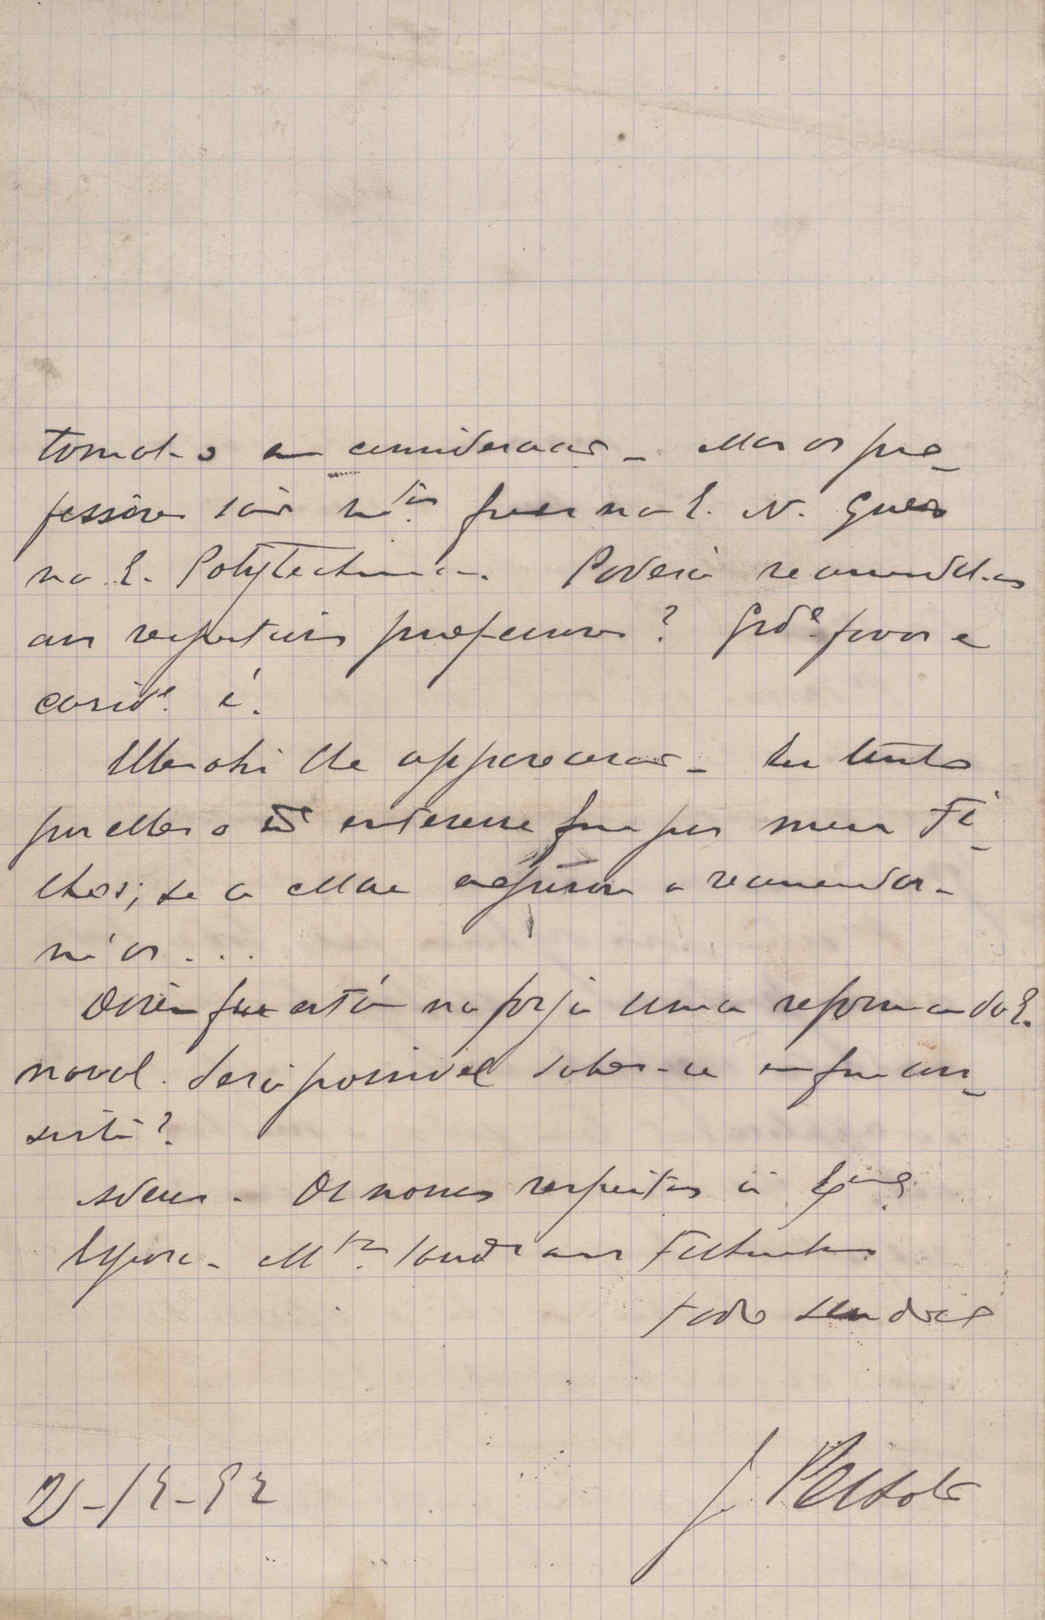 tomal-o em consideração – Mas os pro-
fessôres são m.tos quer na E. N. quer
na E. Polytechnica. Poderá recomendal-os
aos respectivos professores? Grd.e favor e
carid.e é.
Elles ahi lhe apparecerão – Eu tenho
por elles o interesse que por meus Fi-
lhos; se a Mãe a recomendar-
m'os...
Dizem que está na forja uma reforma da E.
naval. Será possivel saber-se em que con-
siste?
Adeus. Os nossos respeitos á Ex.ma
Esposa – M.tas saud.es aos Filhinhos
Todo seu do C
21-12-92
J.